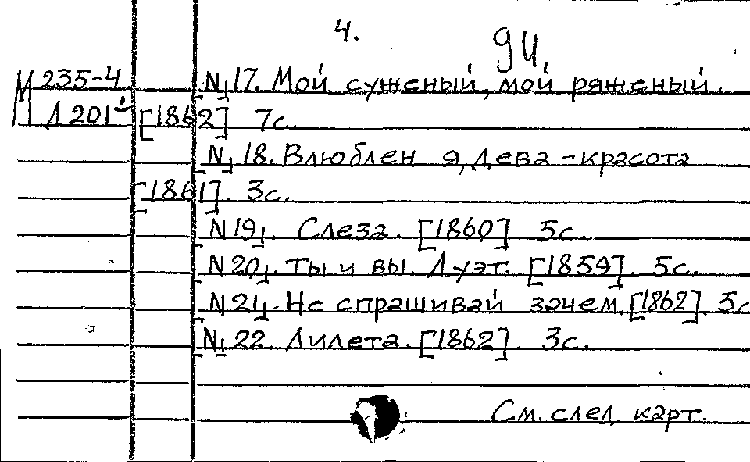 4.
94.
М 235-4 №17. Мой суженый, мой ряженый.
Л 201 [1862] 7с.
№18. Влюблен я, дева-красота
[1861]. 3с.
№19. Слеза. [1860] 5с.
№20. Ты и вы. Дуэт. [1859]. 5с.
№21. Не спрашивай зачем. [1862] 5с
№22. Лилета. [1862]. 3с.
См. след. карт.